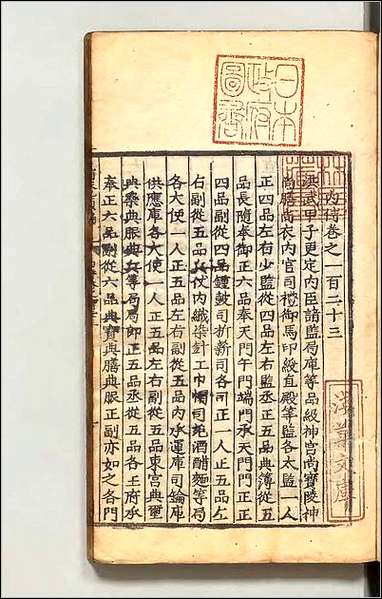 日本
政府
圖書
內侍卷之一百二十三
洪武甲子更定內臣諸監局庫等品級神宮尚寶陵神
尚膳尚衣內官司禮御馬印綬直殿等監各太監一人
正四品左右少監從四品左右監丞正五品典簿從五
品長隨奉御正六品奉天門午門端門承天門門正正
四品副從四品鍾鼓司折新司各司正一人正五品左
右副從五品兵仗內織染針工巾帽司苑酒醋麵等局
各大使一人正五品左右副從五品內承運庫司鑰庫
供應庫各大使一人正五品左右副從五品東宮典璽
典藥典服典兵等局局郎正五品丞從五品各王府承
奉正六品副從六品典寶典膳典服正副亦如之各門
淺草文庫